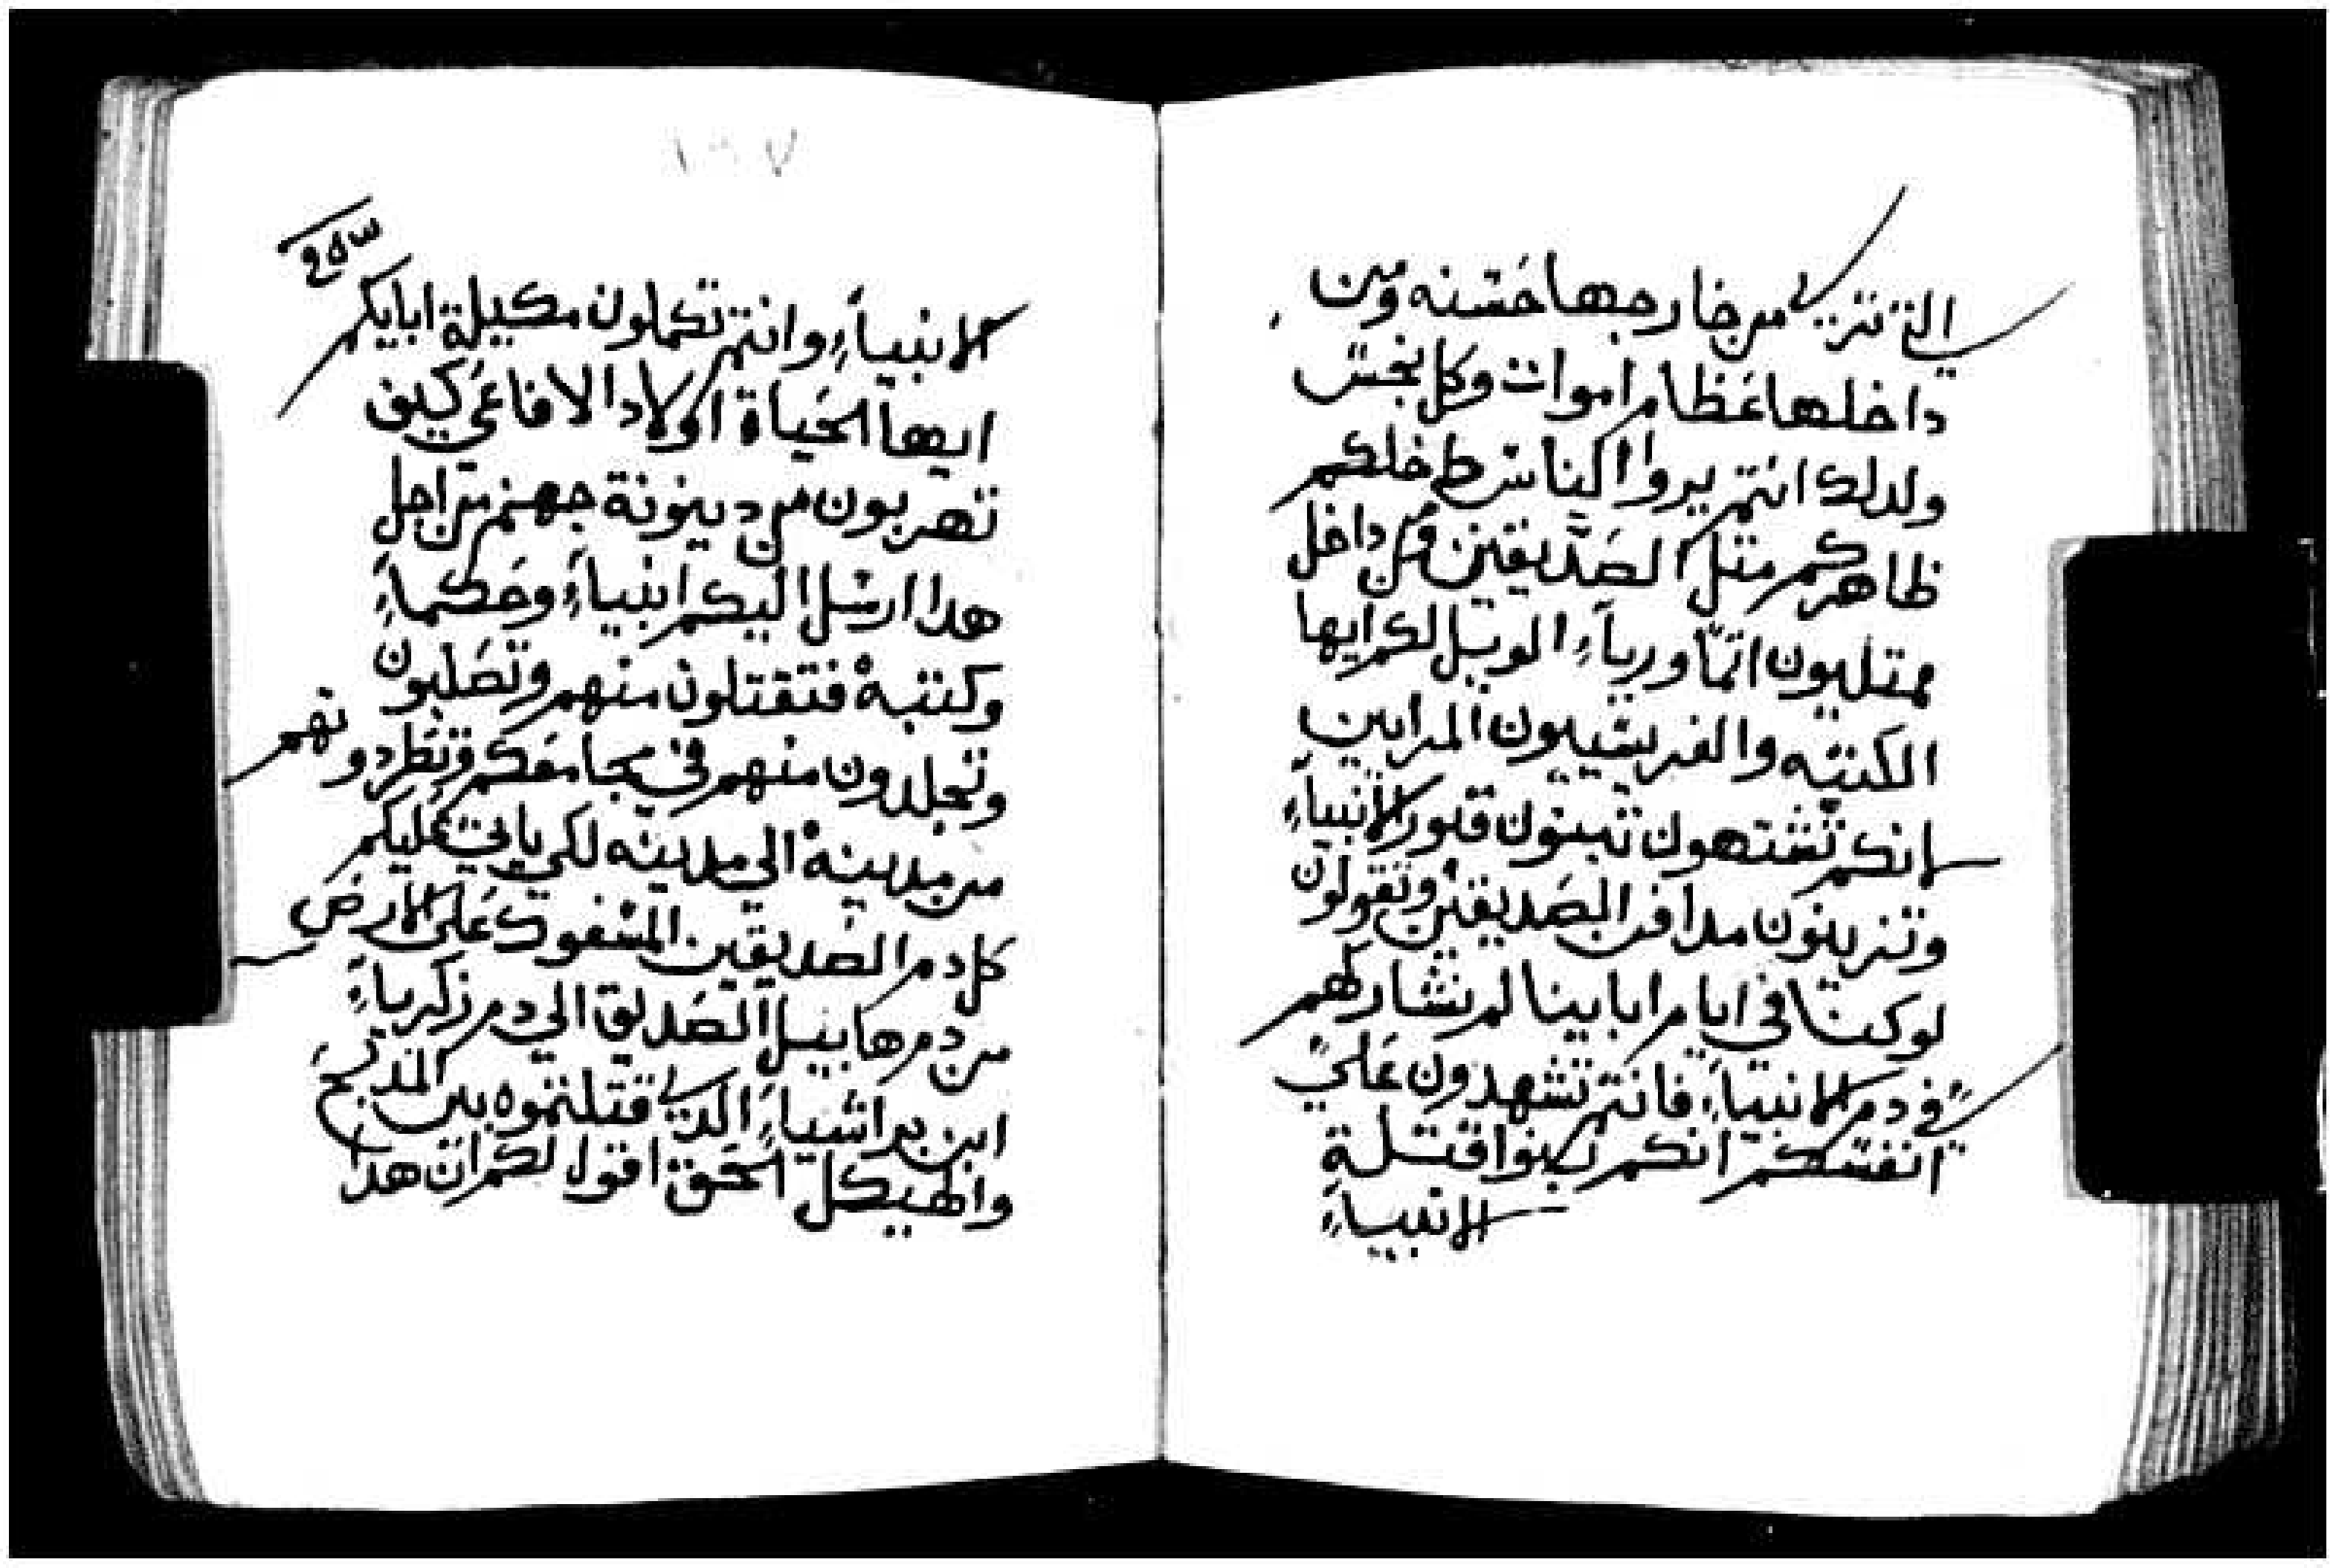 التي تري من خارجها حسنه ومن
داخلها عظام اموات وكل نجس
ولدلك انتم يروا الناس
ظاهركم متل الصديقين ومن داخل
ممتليون اتما ورياء الويل لكم ايها
الكتبه والفريسيون المرايين
لانكم تشتهون تبينون قبور الانبياء
وتزينون مدافن الصديقين وتقولون
لو كنا في ايام ابابينا لم نشاركهم
في دم الانبياء فانتم تشهدون علي
انفسكم انكم بنوا قتلة
الانبياء
١٥٧
الانبياء وانتم تكملون مكيلة ابايكم
ايها الحياة اولاد الافاعي كيف
تهربون من دينونة جهنم من اجل
هدا ارسل اليكم انبياء وحكماء
وكتبة فتقتلون منهم وتصلبون
وتجلدون منهم في مجامعكم وتطردونهم
من مدينة الي مدينه لكي ياتي عليكم
كل دم الصديقين المسفوك علي الارض
من دم هابيل الصديق الي دم زكرياء
ابن براشياء الدي قتلتموه بين المدبح
والهيكل الحق اقول لكم ان هدا